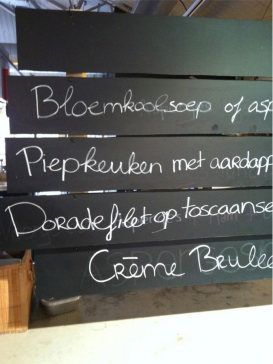 Bloemkoolsoep of asp
Piepkeuken met aardapp
Doradefilet op toscaanse
Crēme Brulee